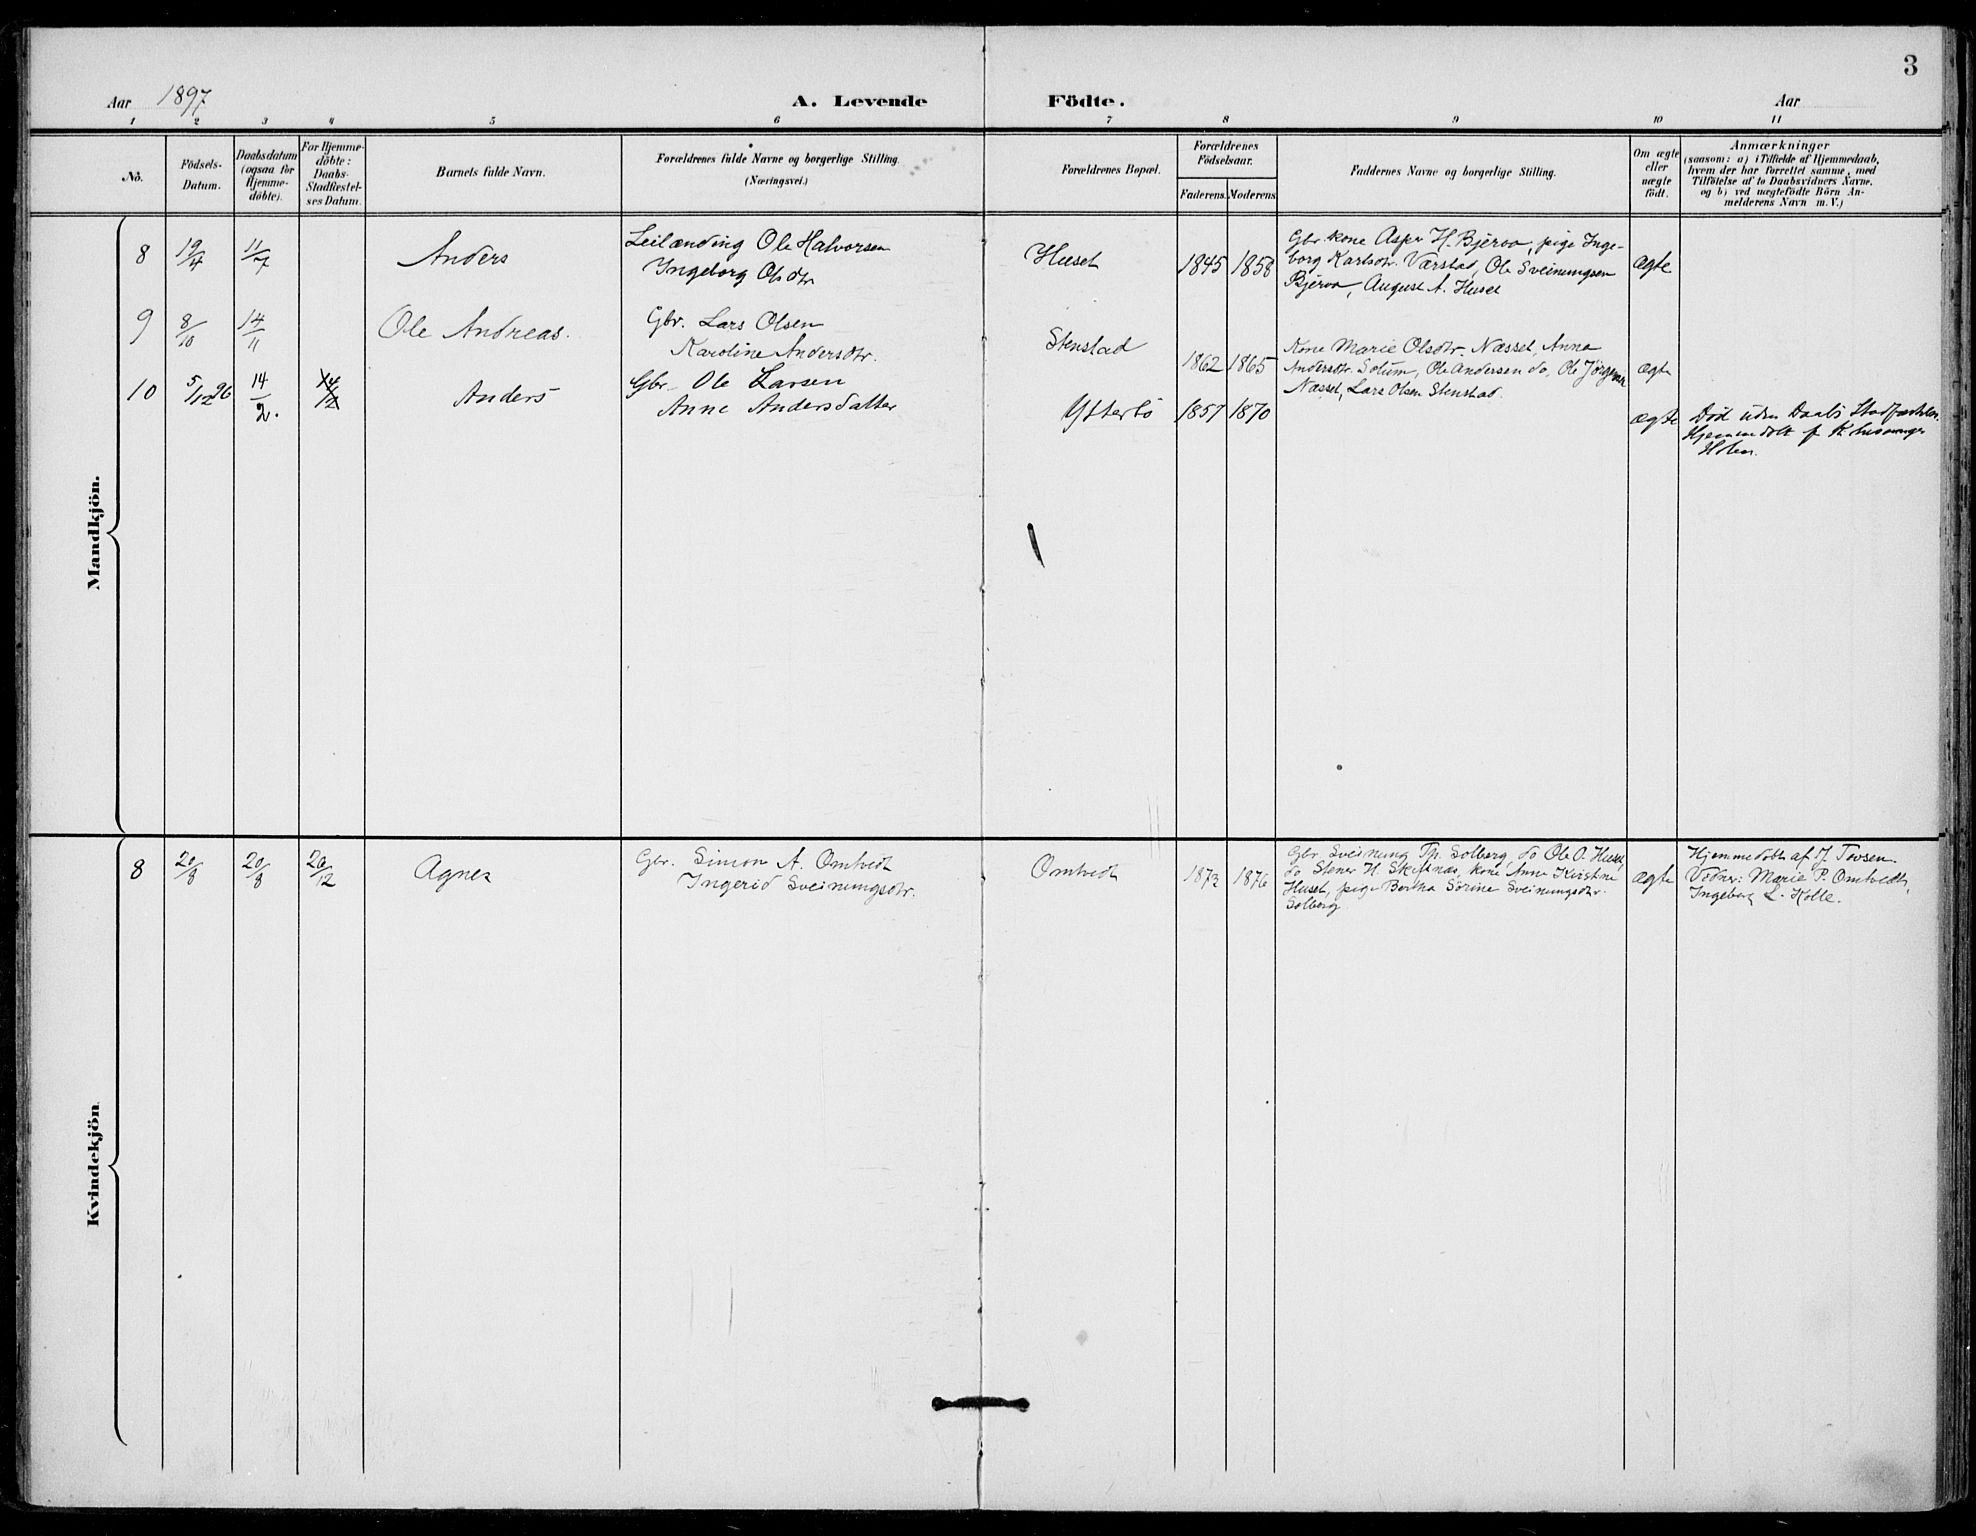 3
Aar 1897 A. Levende Födte. Aar
1 2 3 4 5 6 7 8 9 10 11
No. Födsels-Datum. Daabsdatum (ogsaa for Hjemme-döbte). For Hjemme-döbte: Daabs-Stadfæstel-ses Datum. Barnets fulde Navn. Forældrenes fulde Navne og borgerlige Stilling. (Næringsvei.) Forældrenes Bopæl. Forældrenes Födselsaar. Faderens. Moderens. Faddernes Navne og borgerlige Stilling. Om ægte eller uægte födt. Anmærkninger (saasom: a) i Tilfælde af Hjemmedaab, hvem der har forrettet samme, med Tilföielse af to Daabsvidners Navne, og b) ved uægtefödte Börn An-melderens Navn m. V.)
Mandkjön.
8 19/4 11/7 Anders Leilænding Ole Halvorsen Huset 1845 1858 Gbr. kone Asper H. Bjerva, pige Inge- ægte
Ingeborg Olsdtr borg Karlsdtr. Værstad, Ole Sveinungsen
Bjerva, August A. Huset
9 8/10 14/11 Ole Andreas. Gbr. Lars Olsen Stenstad 1862 1865 Kone Marie Olsdtr. Næsset, Anna ægte
Karoline Andersdtr. Andersdtr. Solum, Ole Andersen do, Ole Jörgensen
Næsset, Lars Olsen Stenstad.
10 5/12 96 14/2. 14/2 Anders Gbr. Ole Larsen Yfterbö 1857 1870 ægte Död uden Daabs Stadfæstelse.
Anne Andersdatter Hjemmedöbt f
Holen.
Kvindekjön
8 20/8 20/8 26/12 Agnes Gbr. Simon A. Omtvedt Omtvedt 1873 1876 Gbr Sveinung Th. Solberg, do Ole O. Huset, ægte Hjemmedöbt af J. Tovsen.
Ingerid Sveinungsdtr. do Stener H. Skiftnæs, kone Anne Kirstine Vidner: Marie P. Omtvedt,
Huset, pige Bertha Sörine Sveinungsdtr. Ingeborg L. Holte.
Solberg